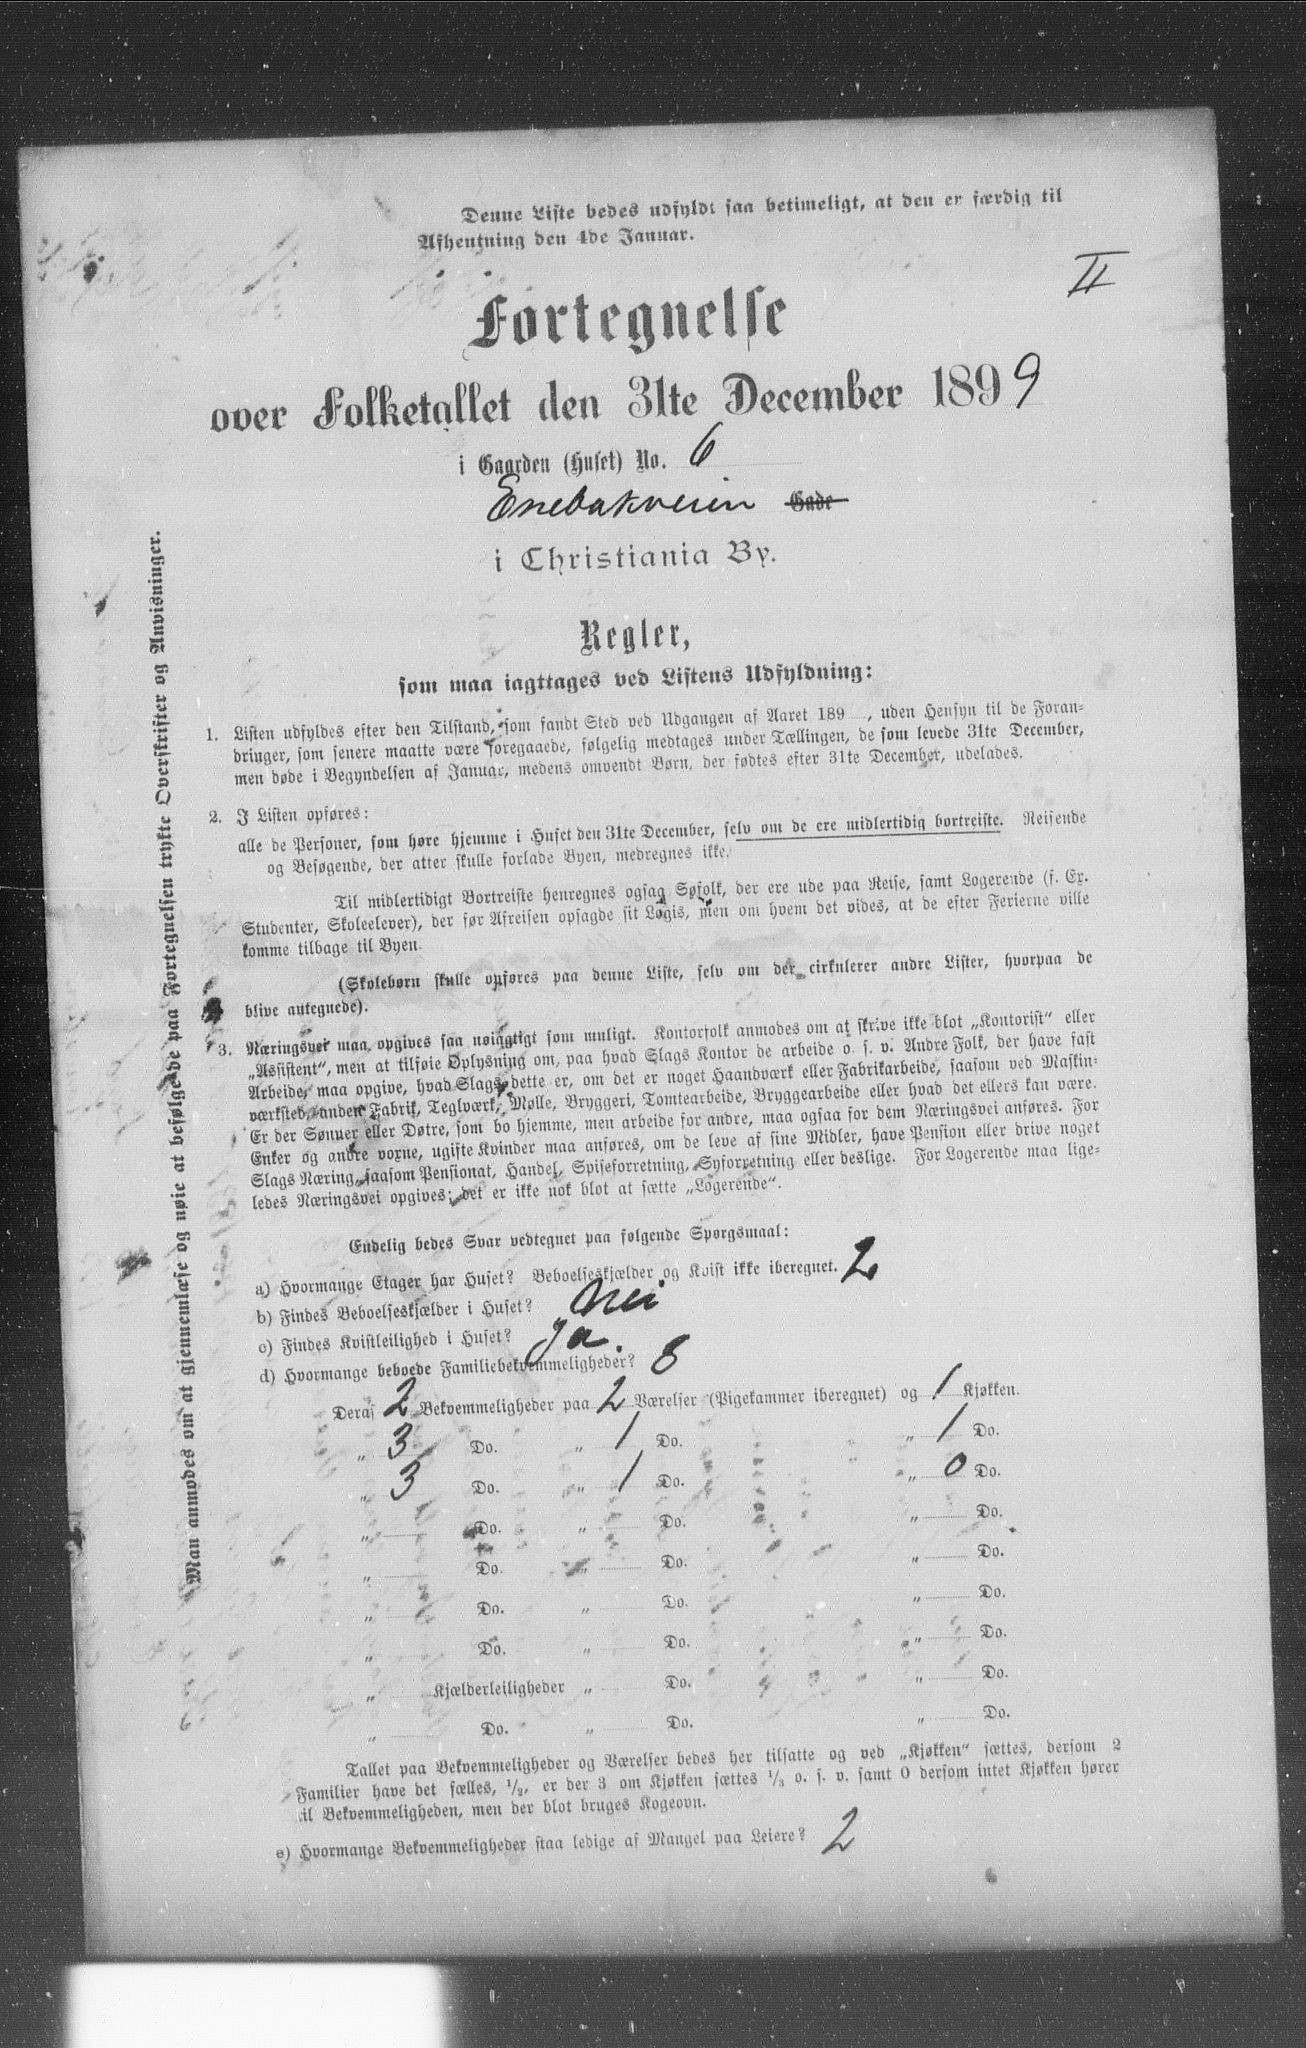 Denne Liste bedes udfyldt saa betimeligt, at den er færdig til
Afhentning den 4de Januar.
II
Fortegnelse
over Folketallet den 31te December 1899
i Gaarden (Huset) No. 6
Enebakveien Gade
i Christiania By.
Regler,
som maa iagttages ved Listens Udfyldning:
1. Listen udfyldes efter den Tilstand, som fandt Sted ved Udgangen af Aaret 189 , uden Hensyn til de Foran-
dringer, som senere maatte være foregaaede, følgelig medtages under Tællingen, de som levede 31te December,
men døde i Begyndelsen af Januar, medens omvendt Børn, der fødtes efter 31te December, udelades.
2. I Listen opføres:
alle de Personer, som høre hjemme i Huset den 31te December, selv om de ere midlertidig bortreiste. Reisende
og Besøgende, der atter skulle forlade Byen, medregnes ikke.
Til midlertidigt Bortreiste henregnes ogsaa Søfolk, der ere ude paa Reise, samt Logerende (f. Ex.
Studenter, Skoleelever), der før Afreisen opsagde sit Logis, men om hvem det vides, at de efter Ferierne ville
komme tilbage til Byen.
(Skolebørn skulle opføres paa denne Liste, selv om der cirkulerer andre Lister, hvorpaa de
blive antegnede).
3. Næringsvei maa opgives saa nøiagtigt som muligt. Kontorfolk anmodes om at skrive ikke blot „Kontorist“ eller
„Assistent“, men at tilføie Oplysning om, paa hvad Slags Kontor de arbeide o. s. v. Andre Folk, der have fast
Arbeide, maa opgive, hvad Slags dette er, om det er noget Haandværk eller Fabrikarbeide, saasom ved Maskin-
værksted, anden Fabrik, Teglværk, Mølle, Bryggeri, Tomtearbeide, Bryggearbeide eller hvad det ellers kan være.
Er der Sønner eller Døtre, som bo hjemme, men arbeide for andre, maa ogsaa for dem Næringsvei anføres. For
Enker og andre voxne, ugifte Kvinder maa anføres, om de leve af sine Midler, have Pension eller drive noget
Slags Næring, saasom Pensionat, Handel, Spiseforretning, Syforretning eller deslige. For Logerende maa lige-
ledes Næringsvei opgives; det er ikke nok blot at sætte „Logerende“.
Endelig bedes Svar vedtegnet paa følgende Spørgsmaal:
a) Hvormange Etager har Huset? Beboelseskjælder og Kvist ikke iberegnet. 2
b) Findes Beboelseskjælder i Huset? Nei
c) Findes Kvistleilighed i Huset? Ja
d) Hvormange beboede Familiebekvemmeligheder? 8
Deraf 2 Bekvemmeligheder paa 2 Værelser (Pigekammer iberegnet) og 1 Kjøkken.
„ 3 Do. „ 1 Do. „ 1 Do.
„ 3 Do. „ 1 Do. „ 0 Do.
„ Do. „ Do. „ Do.
„ Do. „ Do. „ Do.
„ Do. „ Do. „ Do.
„ Do. „ Do. „ Do.
„ Kjælderleiligheder „ Do. „ Do.
„ Do. „ Do. „ Do.
Tallet paa Bekvemmeligheder og Værelser bedes her tilsatte og ved „Kjøkken“ sættes, dersom 2
Familier have det fælles, 1/2, er der 3 om Kjøkken sættes 1/3 o. s. v. samt 0 dersom intet Kjøkken hører
til Bekvemmeligheden, men der blot bruges Kogeovn.
e) Hvormange Bekvemmeligheder staa ledige af Mangel paa Leiere? 2
Man anmodes om at gjennemlæse og nøie at befølge de paa Fortegnelsen trykte Overskrifter og Anvisninger.